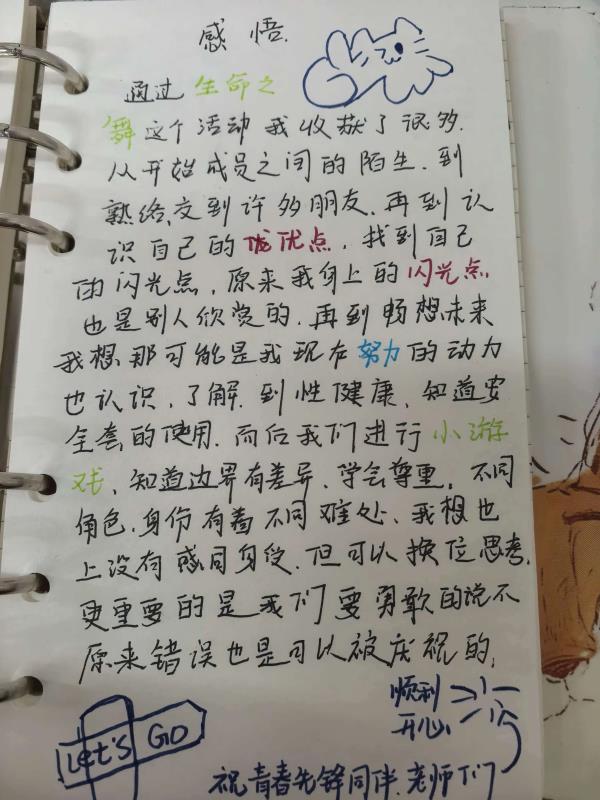 感悟.
通过生命之
舞这个活动我收献了很多.
从开始成员之间的陌生.到
熟络.交到许多朋友.再到认
识自己的优点，找到自己
的闪光点，原来我身上的闪光点
也是别人欣赏的.再到畅想未来
我想那可能是我现在努力的动力
也认识，了解.到性健康，知道安
全套的使用.而后我们进行小游
戏，知道边界有差异.学会尊重，不同
角色.身份有着不同难处、我想也
上没有感同身受.但可以换位思考.
更重要的是我们要勇敢的说不
原来错误也是可以被庆祝的.
顺利
开心
Let's GO
祝青春先锋同伴.老师们